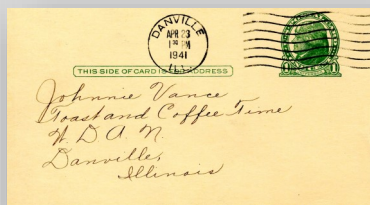 DANVILLE
APR 23
1 30 PM
1941
ILL.
THIS SIDE OF CARD IS ADDRESS
Johnnie Vance
Toast and Coffee Time
W. D. A. N.
Danville,
Illinois